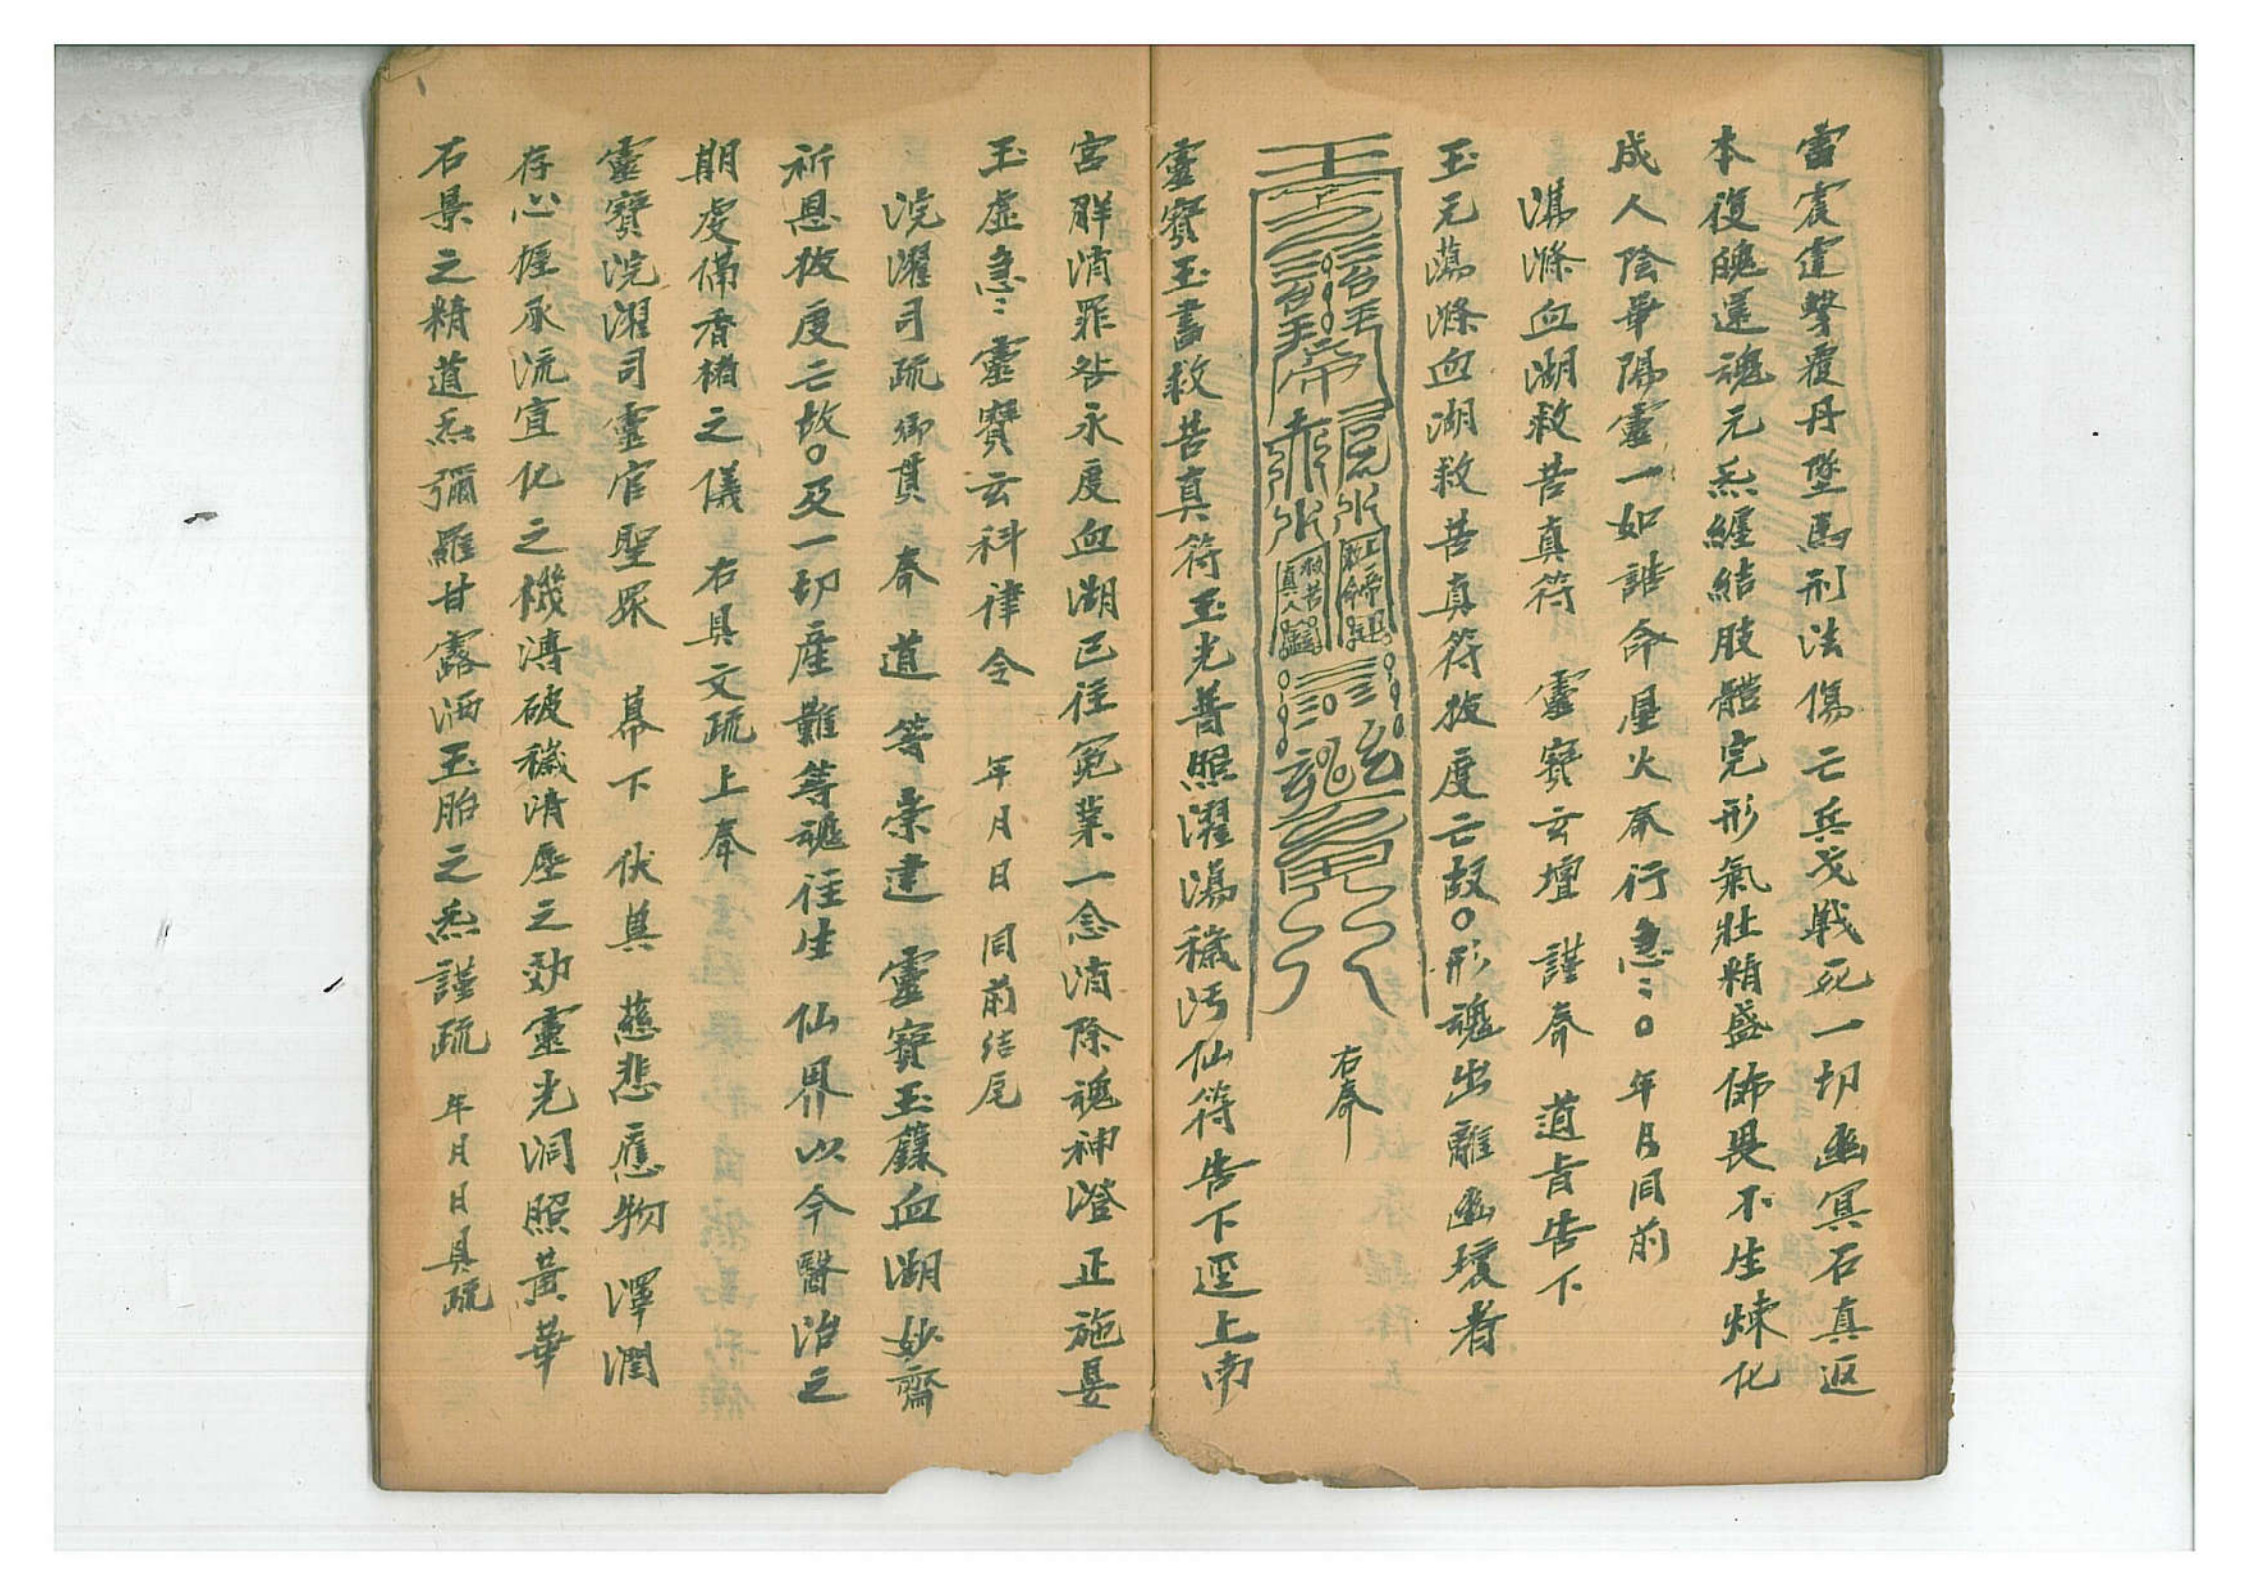 雷霆霆擊覆丹墜馬刑法傷亡兵戈戰死一切幽冥石真返
本復魄還魂元炁纏結肢體完形氣壯精盛佈畏不生煉化
成人陰華陽靈一如誥命星火奉行急〻○年月同前
滌血湖救苦真符 靈寶玄壇 謹奉 道旨告下
玉元蕩滌血湖救苦真符拔度亡故○形魂出離幽壤者
上帝敕命
救苦真人
右奉
靈寶玉書救苦真符玉光普照濯蕩穢污仙符告下逕上南
宮群消罪咎永度血湖已往冤業一念消除魂神澄正施晏
玉虛急〻靈寶玄科律令 年月日同前結尾
浣濯司疏鄉貫 奉 道 等崇建 靈寶玉籙血湖妙齋
祈恩拔度亡故○及一切產難等魂往生 仙界以今醫治之
期虔備香楮之儀 右具文疏上奉
靈寶浣濯司靈官聖眾 幕下 伏冀 慈悲應物 澤潤
存心握承流宣化之機溥破穢清塵之効靈光洞照黃華
石景之精道炁彌羅甘露洒玉胎之炁謹疏 年月日具疏